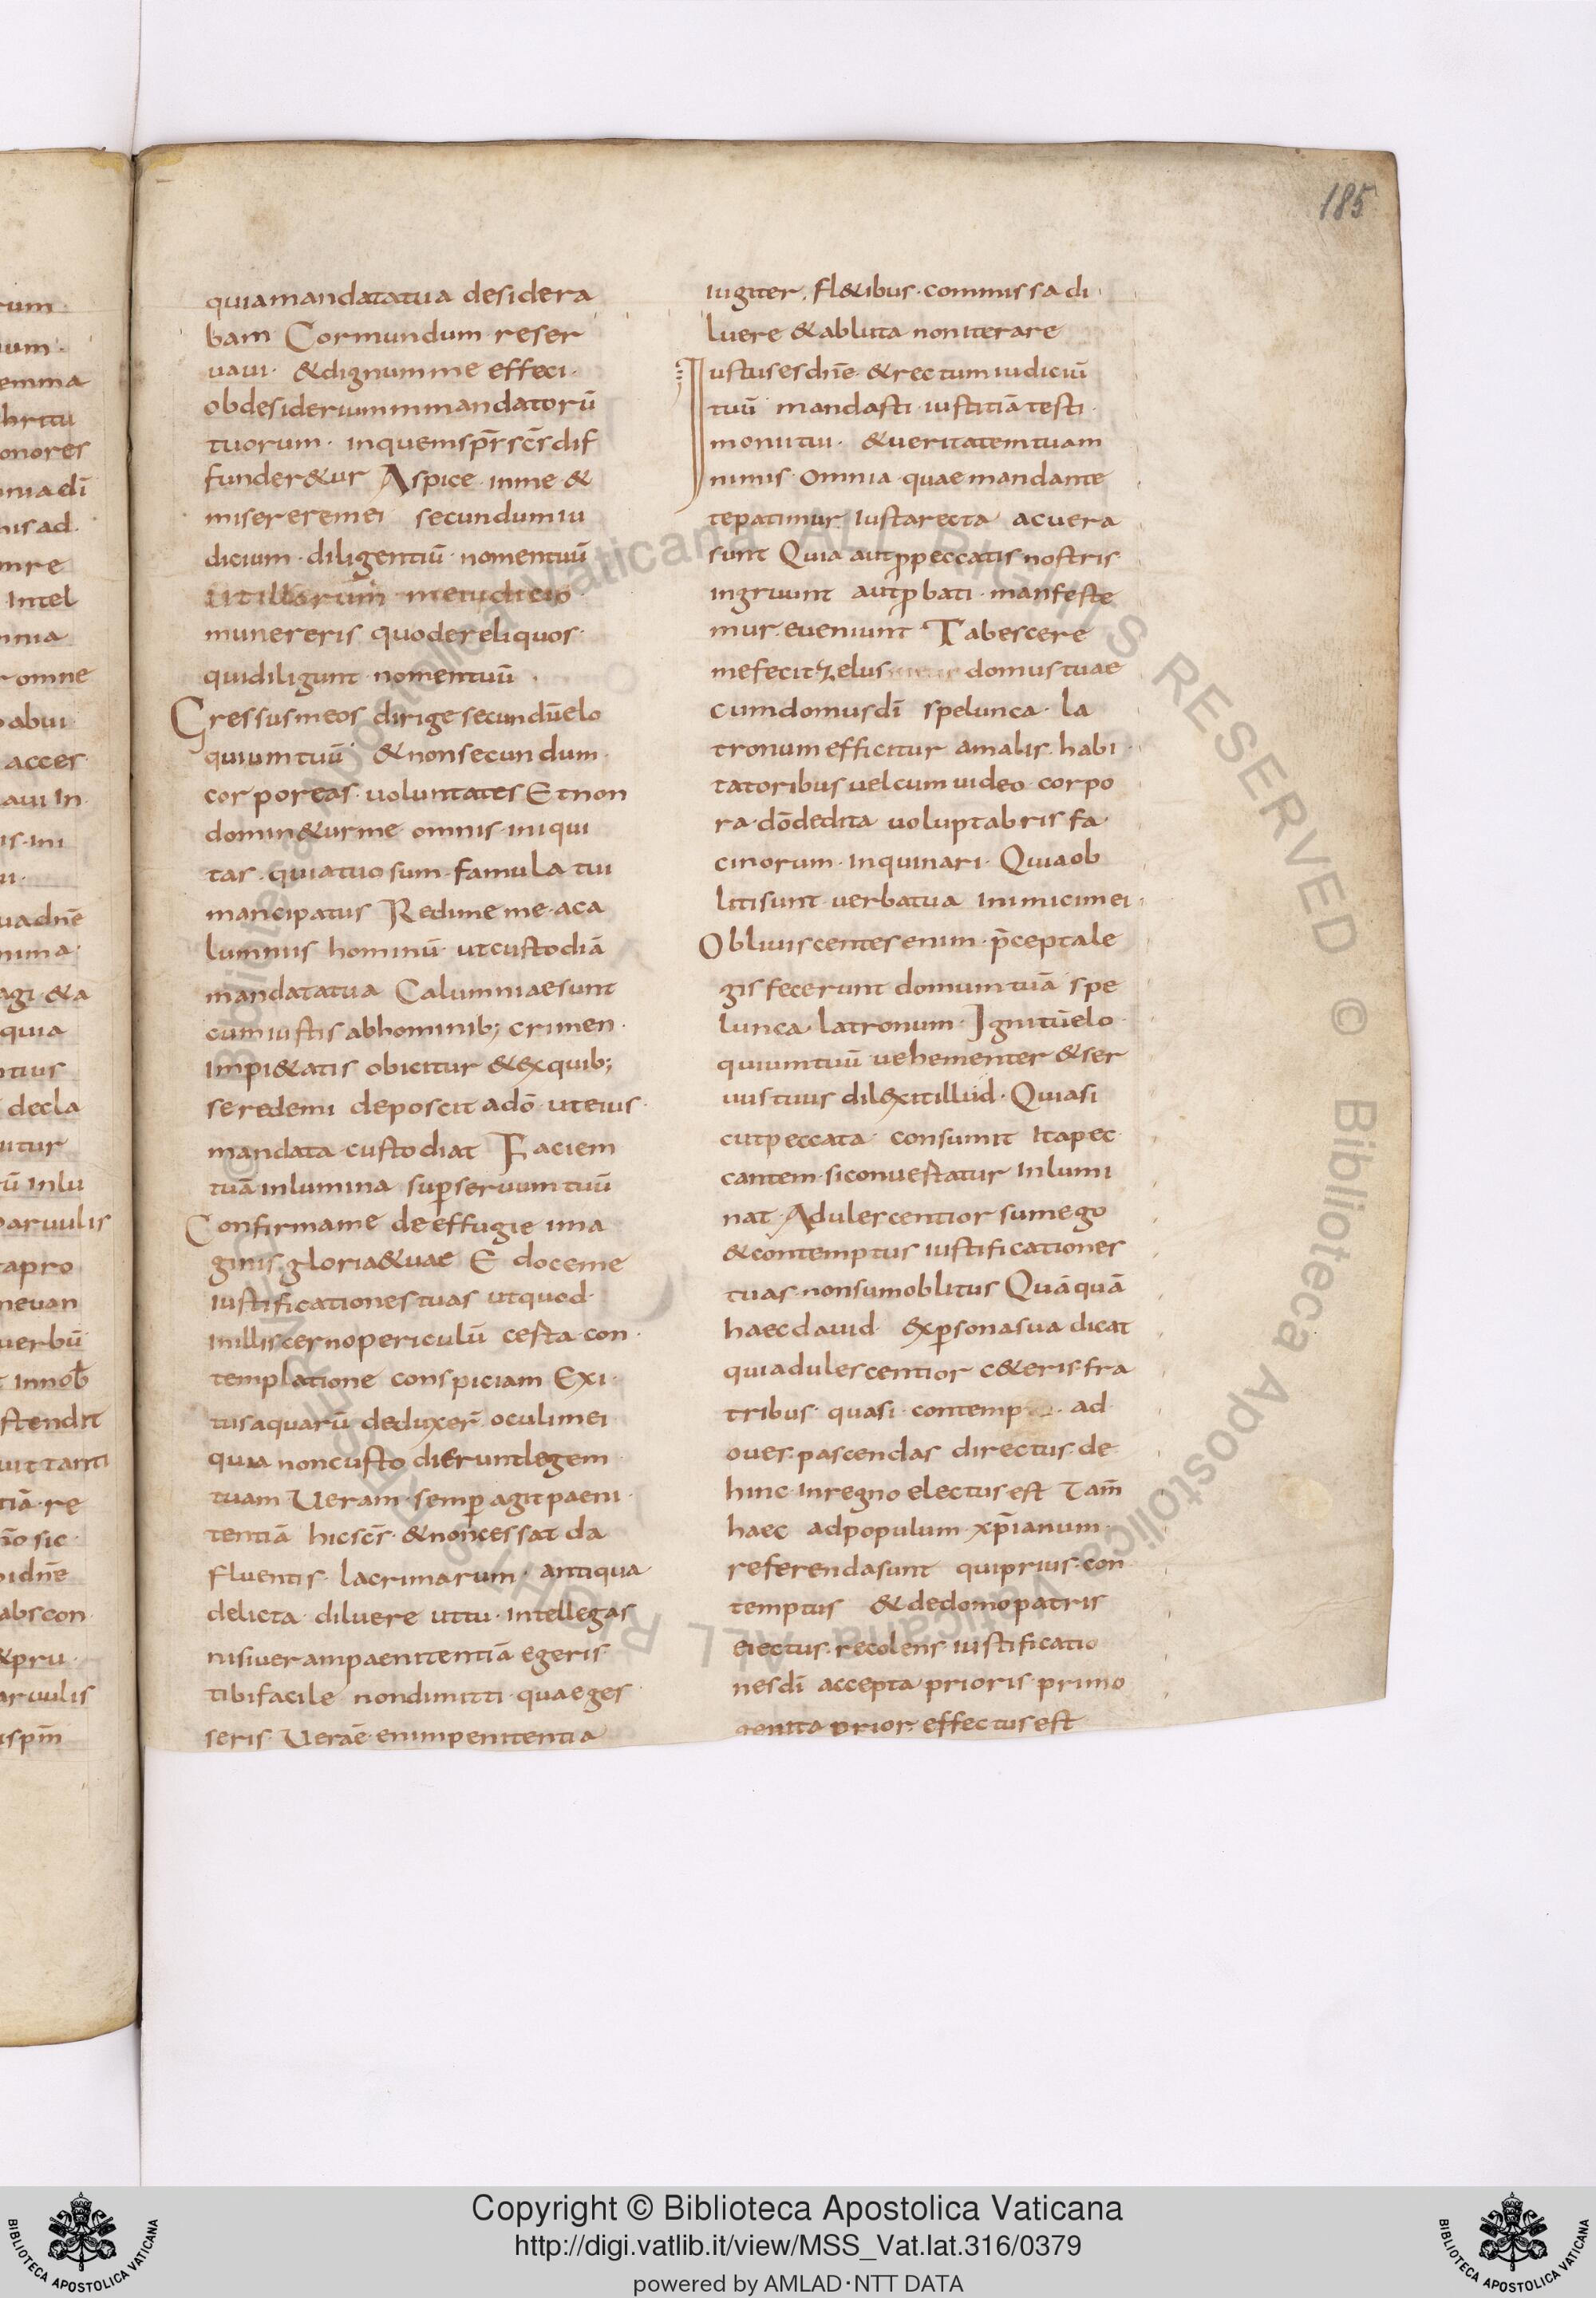 185
rum
um
emma
hritu
onores
niadı̄
nisad
mre
Intel
nnia
omne
abui
acces
aui In
is ini
ui
uadnē
nima
agi &a
quia
ntius
decla
utur
tū Inlu
paruulis
tapro
neuan
uerbū
Innob̄
stendit
uit tanti
tiā re
n̄o sic
idn̄e
abscon
&pru
aruulis
spm̄
quiamandatatua desidera
bam Cormundum reser
uaui · &dignumme effeci ·
obdesideriummmandatorū
tuorum · inquemsp̄rsc̄sdif
funder&ur Aspice inme &
misereremei secundumiu
dicium · diligentiū nomentuū
munereris quodereliquos ·
quidiligunt nomentuū ·
Gressusmeos dirige secundūelo
quiumtuū &nonsecundum ·
corporeas · uoluntates Etnon
domin&urme omnis · iniqui
tas · quiatuo sum famulatui
mancipatus Redimeme · aca
lumniis hominū utcustodiā
mandatatua Calumniaesunt
cumiustis abhominib; crimen ·
Impi&atis obicitur &exquib;
seredemi deposcit adō uteius ·
mandata custodiat Faciem
tuā inlumina sup̱seruumtuū
Confirmame deeffugie ima
ginis · gloria&uae E doceme
iustificationestuas utquod ·
inilliscernopericulū cesta con ·
templatione conspiciam Exi ·
tusaquarū deduxer̄ oculimei
quia noncustodieruntlegem
tuam Ueram · semp̱ agit paeni ·
tentiā hicsc̄s · &noncessat da
fluentis · lacrimarum · antiqua
delicta · diluere uttu · intellegas
nisiuerampaenitentiā egeris ·
tibifacile nondimitti · quaeges
seris Ueraē enimpenitentia
iugiter · fl&ibus · commissa di ·
luere &abluta noniterare
Iustusesdn̄e · &rectumiudiciū
tuū mandasti · iustitiā testi ·
moniitui · &ueritatemtuam
nimis · Omnia · quaemandante
tepatimur iustarecta acuera
sunt Quia autp̱peccatis nostris
ingruunt autp̱bati · manfeste
mur · eueniunt Tabescere
mefecitzelus domustuae
cumdomusdı̄ spelunca · la
tronumefficitur amalis · habi ·
tatoribus uelcum uideo · corpo
ra · dōdedita uoluptabris fa ·
cinorum · inquinari · Quiaob
litisunt uerbatua inimicimei ·
Obliuiscentesenim · p̄ceptale
gis fecerunt domumtuā spe
lunca · latronum · Ignitūelo ·
quiumtuū uehementer &ser
uustuus dilexitillud · Quiasi
cutpeccata consumit Itapec
cantem · siconuestatur Inlumi
nat · Adulercentior sumego
&contemptus iustificationes
tuas · nonsumoblitus Quāquā
haecdauid · exp̱sonasua dicat
quiadulescentior c&eris · fra
tribus · quasi · contemp · ad
oues · pascendas directus · de
hinc · inregno electus est Tam̄
haec adpopulum · xp̄ianum
referendasunt quiprius · con
temptus &dedomopatris
eiectus · recolens iustificatio
nesdı̄ accepta · prioris · primo
genita prior · effectus est
© Biblioteca Apostolica Vaticana ALL RIGHTS RESERVED © Biblioteca Apostolica Vaticana ALL RIGHTS RESERVED
Copyright © Biblioteca Apostolica Vaticana
http://digi.vatlib.it/view/MSS_Vat.lat.316/0379
powered by AMLAD·NTT DATA
BIBLIOTECA APOSTOLICA VATICANA
BIBLIOTECA APOSTOLICA VATICANA